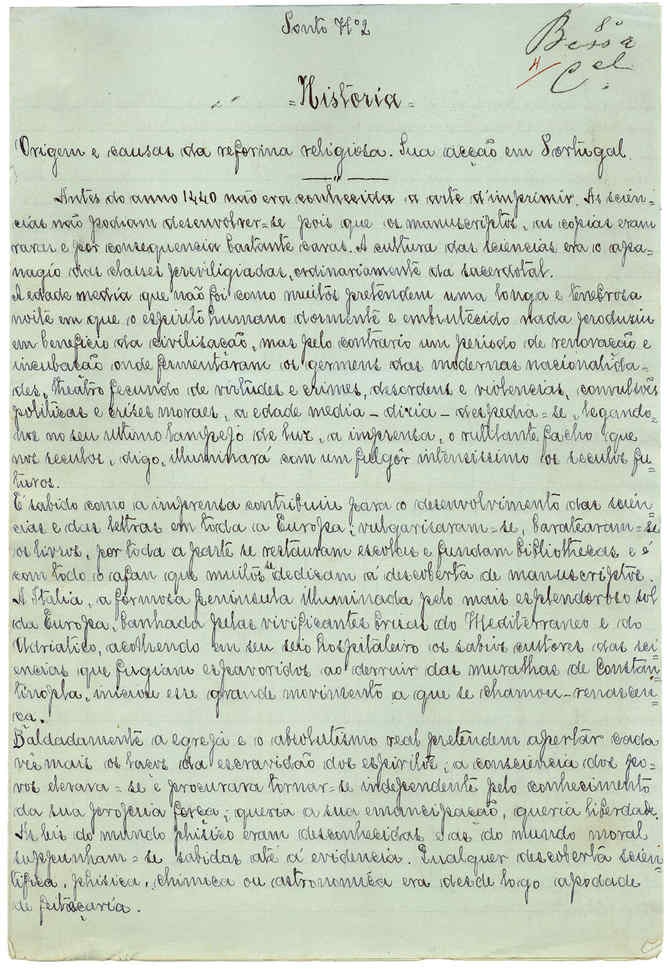 Ponto Nº 2
8º
Bessa
Cel.
=Historia=
Origem e causas da reforma religiosa. Sua acção em Portugal.
Antes do anno 1440 não era conhecida a arte d'imprimir. As scien=
cias não podiam desenvolver=se pois que os manuscriptos, as cópias eram
raras e por consequencia bastante caras. A cultura das sciencias era o apa=
nagio das classes previligiadas, ordinariamente da sacerdotal.
A edade media que não foi como muitos pretendem uma longa e tenebrosa
noite em que o espirito humano dormente e embrutecido nada produziu
em beneficio da civilisação, mas pelo contrario um periodo de renovação e
incubação onde fermentáram os germens das modernas nacionalida=
des, theatro fecundo de virtudes e crimes, desordens e violencias, convulsões
politicas e crises moraes, a edade media – dizia – despedia=se, legando=
nos no seu ultimo lampejo de luz, a imprensa, o rutilante facho que
nos seculos, digo, illuminará com um fulgôr intensissimo os seculos fu=
turos.
É sabido como a imprensa contribuiu para o desenvolvimento das scien=
cias e das lettras em toda a Europa; vulgarisaram=se, baratearam=se
os livros, por toda a parte se restauram escolas e fundam bibliothecas e é
com todo o afan que muitos se dedicam á descoberta de manuscriptos.
A Italia, a formosa peninsula illuminada pelo mais esplendoroso sol
da Europa, banhada pelas vivificantes brisas do Mediterraneo e do
Adriatico, acolhendo em seu seio hospitaleiro os sabios cultores das sci=
encias que fugiam espavoridos ao derruir das muralhas de Constan=
tinopla, iniciou esse grande movimento a que se chamou – renascen=
ça.
Baldadamente a egreja e o absolutismo real pretendem apertar cada
vez mais os laços da escravidão dos espiritos; a consciencia dos po=
vos elevava=se e procurava tornar=se independente pelo conhecimento
da sua propria força; queria a sua emancipação, queria liberdade.
As leis do mundo phisico eram desconhecidas e as do mundo moral
suppunham=se sabidas até á evidencia. Qualquer descoberta scien=
tifica, phisica, chimica ou astronomica era desde logo apodada
de feitiçaria.